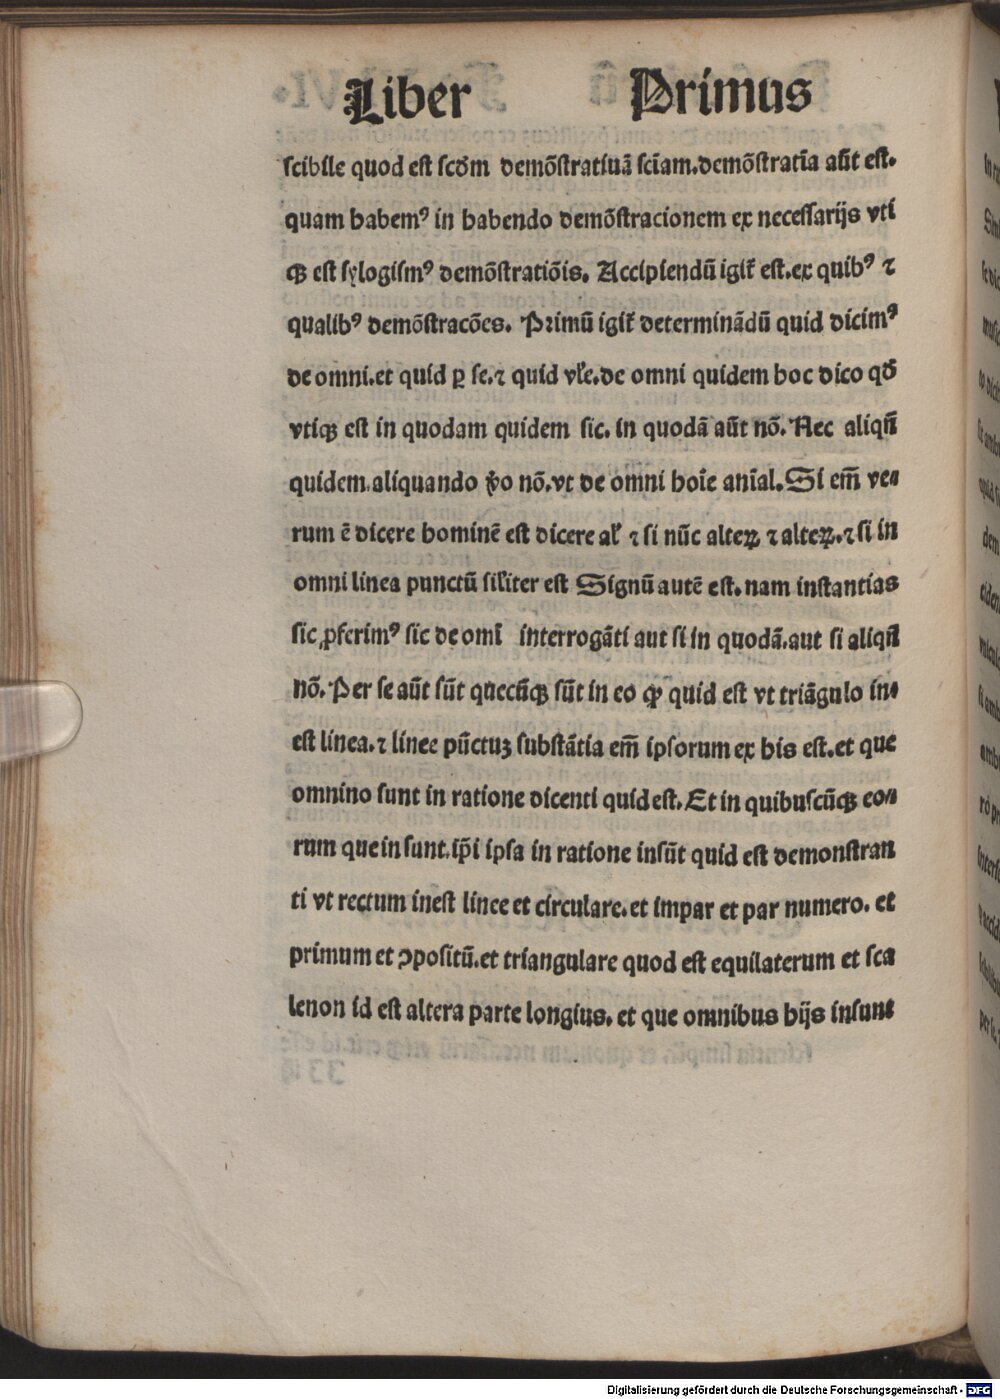 Liber Primus
scibile quod est scd̃m demõstratiuã sciam.demõstratĩa aũt est.
quam habemꝰ in habendo demõstracionem ex necessarijs vti
qꝫ est sylogismꝰ demõstratiõis. Accipiendũ igit̃ est.ex quibꝰ ⁊
qualibꝰ demõstracões. Primũ igit̃ determinãdũ quid dicimꝰ
de omni.et quid ꝑ se.⁊ quid vl̃e.de omni quidem hoc dico qd̃
vtiqꝫ est in quodam quidem sic. in quodã aũt nõ. Nec aliqñ
quidem.aliquando ṽo nõ.vt de omni hoĩe aniãl. Si em̃ ve⸗
rum ẽ dicere hominẽ est dicere al̃ ⁊ si nũc alteꝝ ⁊ alteꝝ.⁊ si in
omni linea punctũ sil̃iter est Signũ autẽ est. nam instantias
sic ꝓferimꝰ sic de omĩ interrogãti aut si in quodã.aut si aliqñ
nõ. Per se aũt sũt quecũqꝫ sũt in eo ꝙ quid est vt triãgulo in⸗
est linea.⁊ linee pũctuꝫ substãtia em̃ ipsorum ex his est.et que
omnino sunt in ratione dicenti quid est. Et in quibuscũqꝫ eo⸗
rum que insunt.ip̃i ipsa in ratione insũt quid est demonstran
ti vt rectum inest linee et circulare.et impar et par numero. et
primum et ↄpositũ.et triangulare quod est equilaterum et sca
lenon id est altera parte longius. et que omnibus hijs insunt
Digitalisierung gefördert durch die Deutsche Forschungsgemeinschaft - DFG